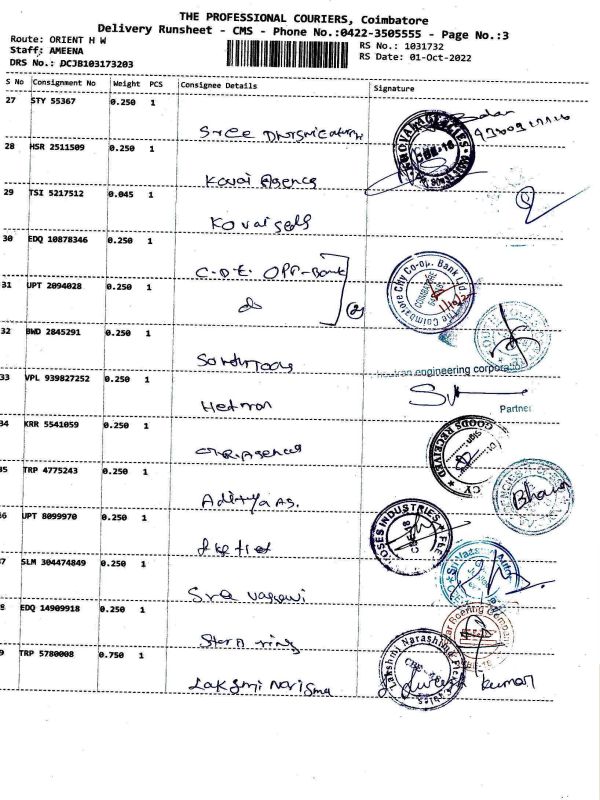 THE PROFESSIONAL COURIERS, Coimbatore
Delivery Runsheet - CMS - Phone No.:0422-3505555 - Page No.:3
Route: ORIENT H W
RS No.: 1031732
Staff: AMEENA
RS Date: 01-Oct-2022
DRS No.: DCJB103173203
S No Consignment No Weight PCS Consignee Details Signature
27 STY 55367 0.250 1
Sree
28 HSR 2511509 0.250 1
Kovai Agency
29 TSI 5217512 0.045 1
Kovai seds
30 EDQ 10878346 0.250 1
C.D.E. OPP-Bank
The Coimbatore City Co-op. Bank Ltd.
31 UPT 2094028 0.250 1
(2)
32 BWD 2845291 0.250 1
engineering corpora
33 VPL 939827252 0.250 1
Hetron
Partner
34 KRR 5541059 0.250 1
GOODS RECEIVED
35 TRP 4775243 0.250 1
Aditya As.
Bhava
36 UPT 8099970 0.250 1
INDUSTRIES
37 SLM 304474849 0.250 1
Sree
38 EDQ 14909918 0.250 1
Roofing Company
39 TRP 5780008 0.750 1
Lakshmi Narasimha
CBE-18
Lakshmi Narisma
kumar